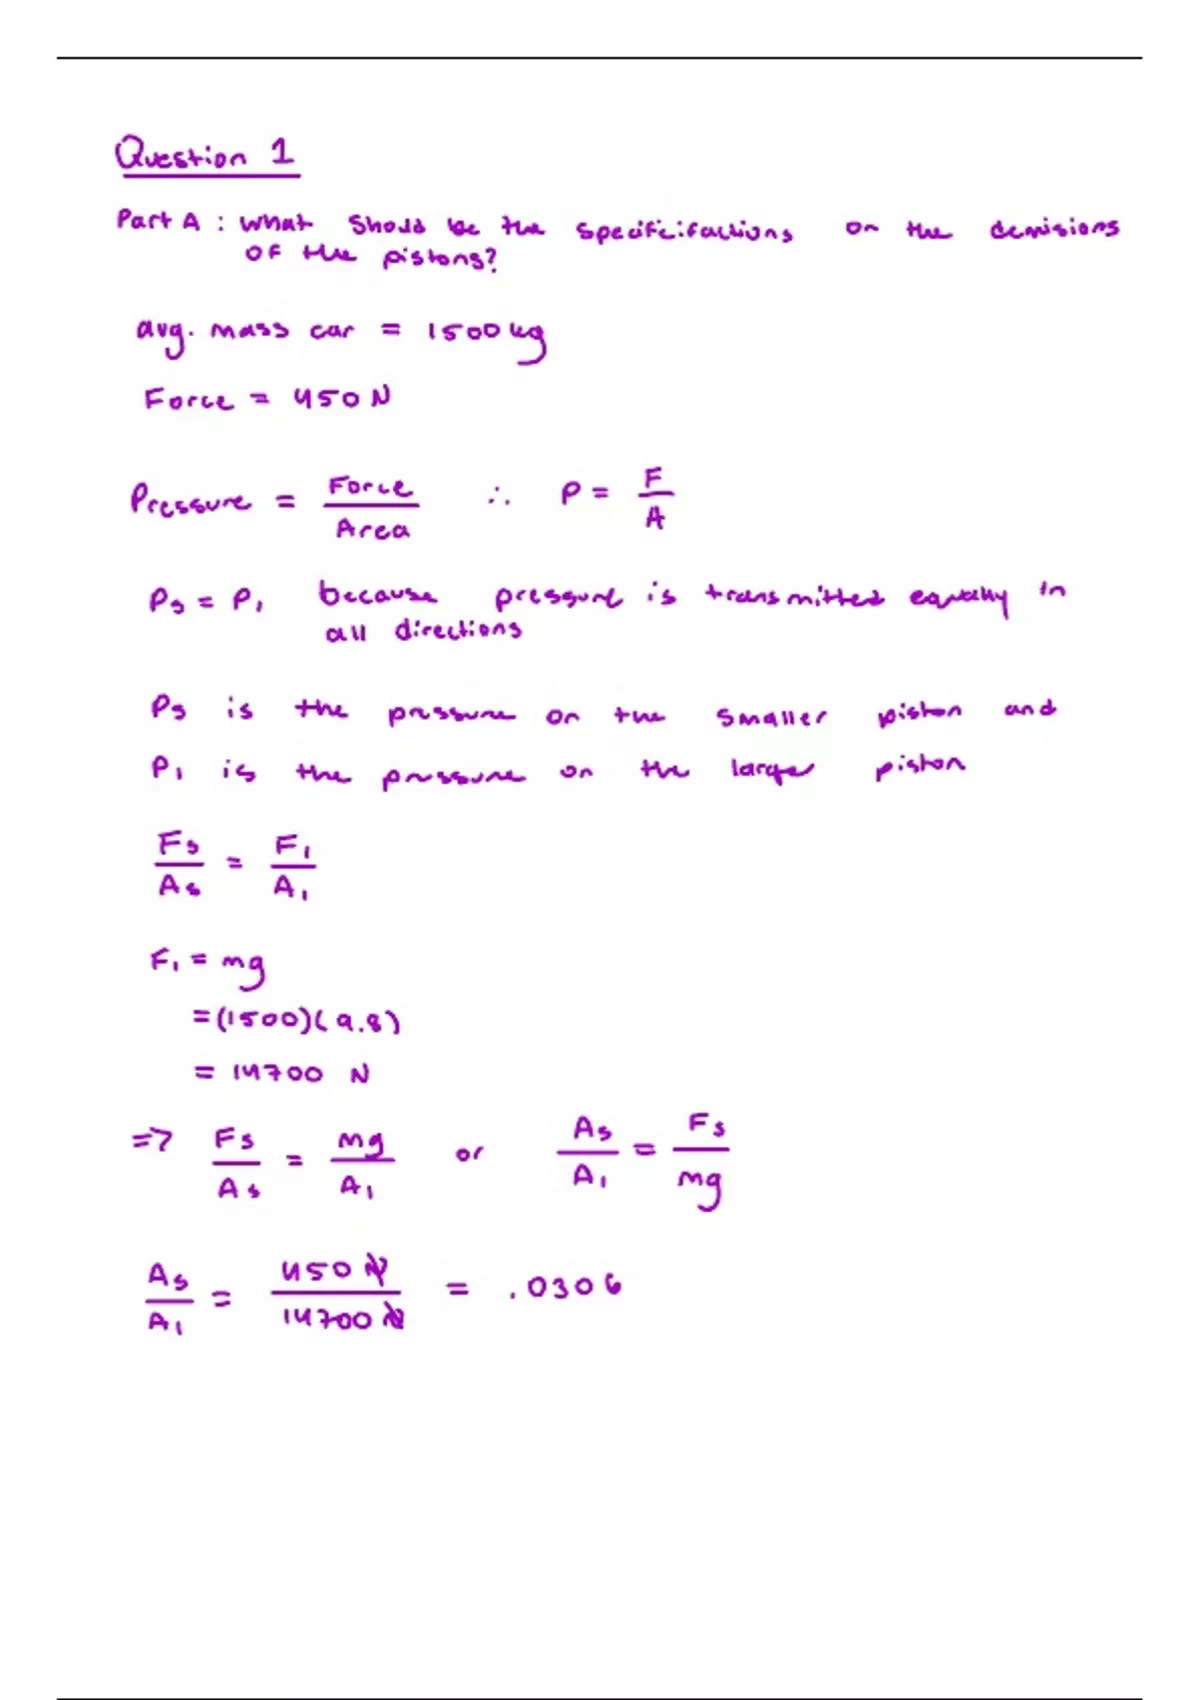 Question 1
Part A : What should be the specificifactions on the demisions
of the pistons?
avg. mass car = 1500 kg
Force = 450 N
Pressure = Force / Area ∴ P = F / A
Ps = P1 because pressure is transmitted equally in
all directions
Ps is the pressure on the smaller piston and
P1 is the pressure on the larger piston
Fs / As = F1 / A1
F1 = mg
= (1500)(9.8)
= 14700 N
=> Fs / As = mg / A1 or As / A1 = Fs / mg
As / A1 = 450 N / 14700 N = .0306